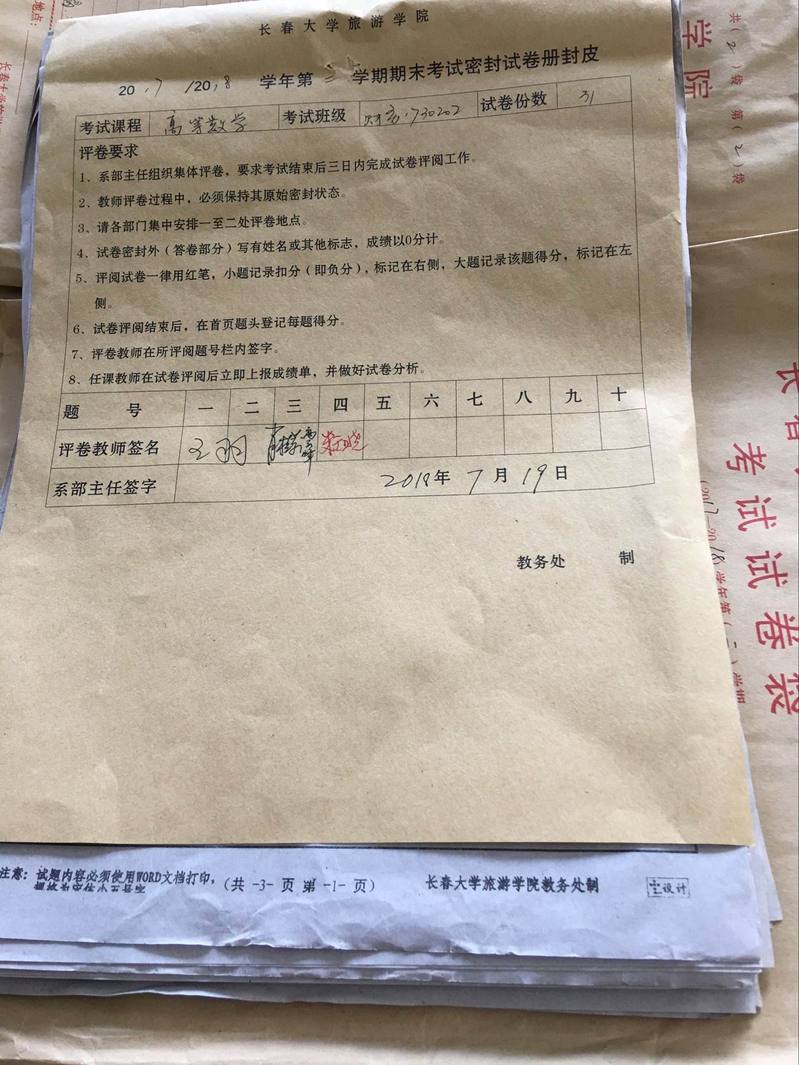 长春大学旅游学院
2017/2018 学年第二学期期末考试密封试卷册封皮
考试课程 高等数学 考试班级 试卷份数 31
评卷要求
1、系部主任组织集体评卷，要求考试结束后三日内完成试卷评阅工作。
2、教师评卷过程中，必须保持其原始密封状态。
3、请各部门集中安排一至二处评卷地点。
4、试卷密封外（答卷部分）写有姓名或其他标志，成绩以0分计。
5、评阅试卷一律用红笔，小题记录扣分（即负分），标记在右侧，大题记录该题得分，标记在左
侧。
6、试卷评阅结束后，在首页题头登记每题得分。
7、评卷教师在所评阅题号栏内签字。
8、任课教师在试卷评阅后立即上报成绩单，并做好试卷分析。
题 号 一 二 三 四 五 六 七 八 九 十
评卷教师签名 王羽
系部主任签字 2018年7月19日
教务处 制
注意：试题内容必须使用WORD文档打印，（共 -3- 页 第 -1- 页） 长春大学旅游学院教务处制
设计
地点：
学院
共（2）袋 第（2）袋
考试试卷袋
(2017-2018)学年第(二)学期